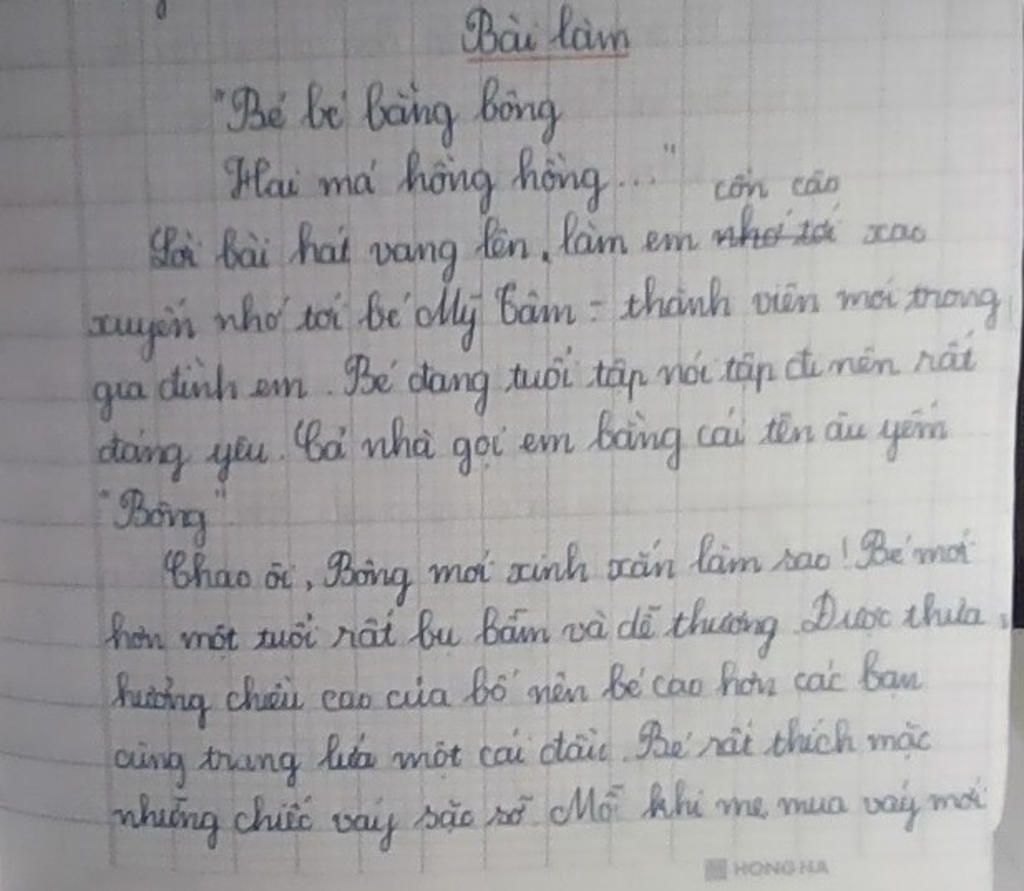 Bài làm
"Bé bé bằng bông
Hai má hồng hồng..."
cồn cào
Lời bài hát vang lên, làm em nhớ tới xao
xuyến nhớ tới bé Mỹ Tâm - thành viên mới trong
gia đình em. Bé đang tuổi tập nói tập đi nên rất
đáng yêu. Cả nhà gọi em bằng cái tên âu yếm
"Bông"
Chao ôi, Bông mới xinh xắn làm sao! Bé mới
hơn một tuổi rất bụ bẫm và dễ thương. Được thừa
hưởng chiều cao của bố nên bé cao hơn các bạn
cùng trang lứa một cái đầu. Bé rất thích mặc
những chiếc váy sặc sỡ. Mỗi khi mẹ mua váy mới
HONG HA